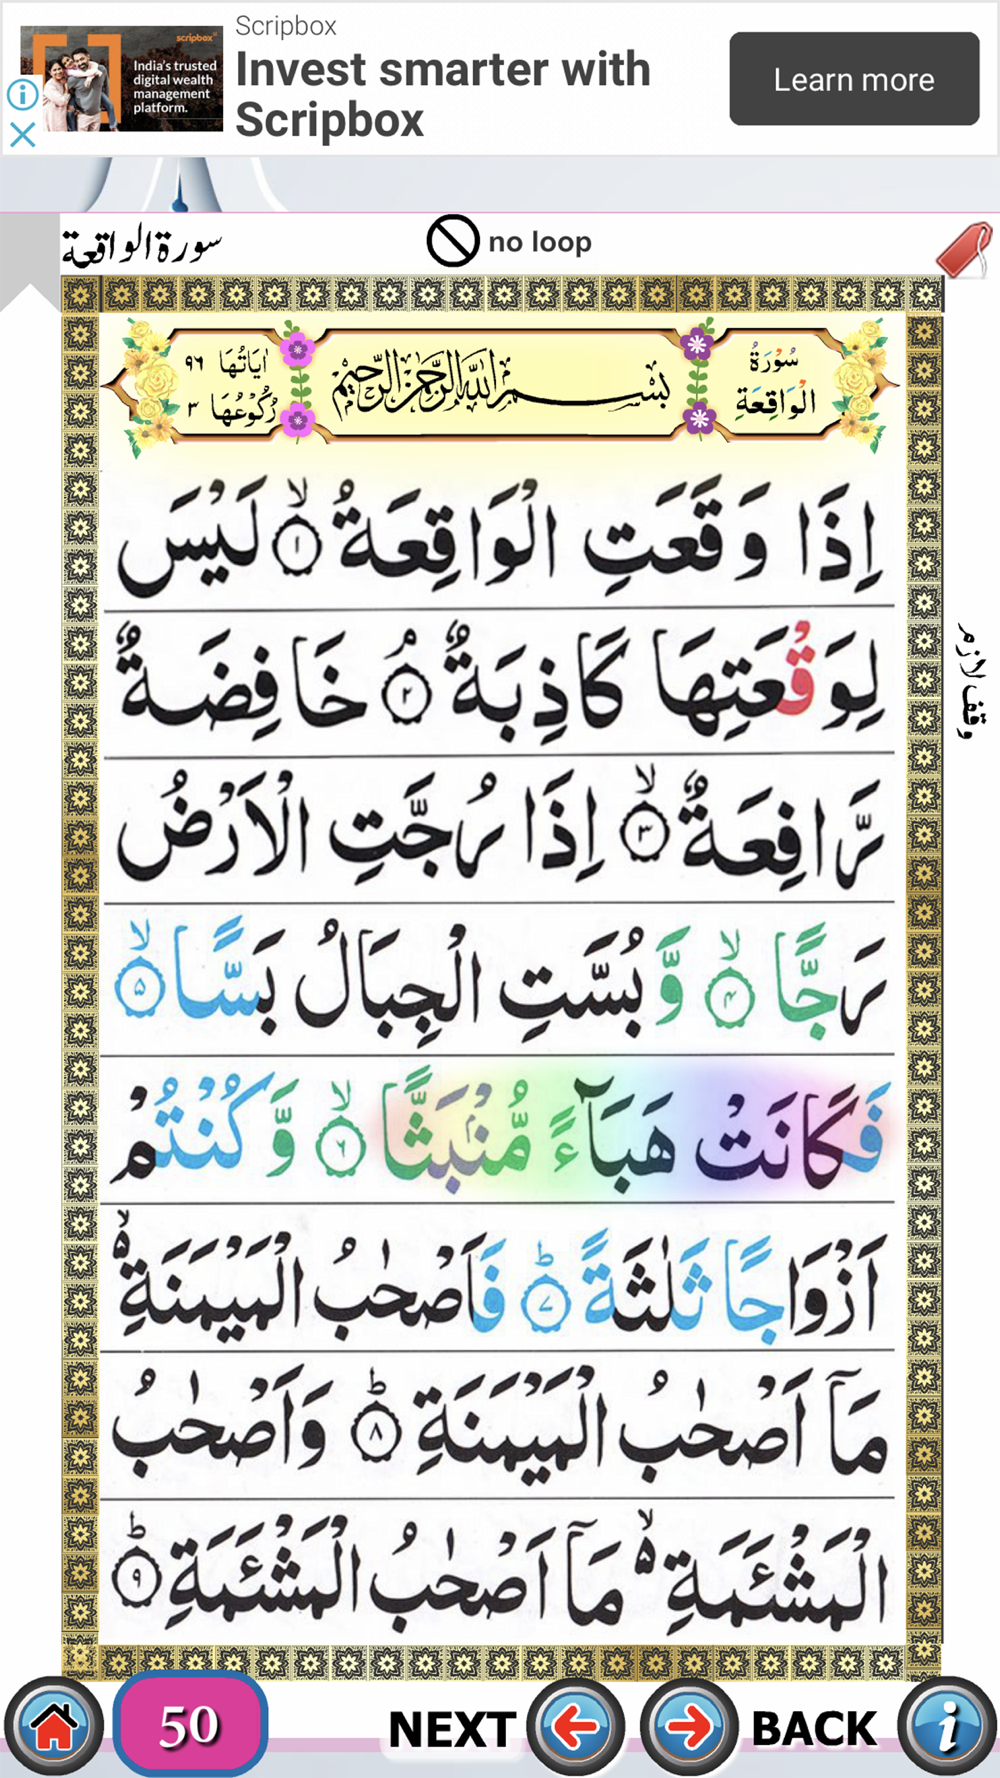 Scripbox
scripbox
India's trusted
digital wealth
management
platform.
Invest smarter with
Scripbox
Learn more
سورة الواقعة
no loop
سُوْرَةُ
الْوَاقِعَةِ
بِسْمِ اللّٰهِ الرَّحْمٰنِ الرَّحِيْمِ
اٰيَاتُهَا ٩٦
رُكُوْعُهَا ٣
اِذَا وَقَعَتِ الْوَاقِعَةُ ۙ﴿١﴾ لَيْسَ
لِوَقْعَتِهَا كَاذِبَةٌ ۘ﴿٢﴾ خَافِضَةٌ
وقف لازم
رَّافِعَةٌ ۙ﴿٣﴾ اِذَا رُجَّتِ الْاَرْضُ
رَجًّا ۙ﴿٤﴾ وَّبُسَّتِ الْجِبَالُ بَسًّا ۙ﴿۵﴾
فَكَانَتْ هَبَآءً مُّنْۢبَثًّا ۙ﴿٦﴾ وَّكُنْتُمْ
اَزْوَاجًا ثَلٰثَةً ؕ﴿٧﴾ فَاَصْحٰبُ الْمَيْمَنَةِ ۙ۬
مَاۤ اَصْحٰبُ الْمَيْمَنَةِ ؕ﴿٨﴾ وَاَصْحٰبُ
الْمَشْـَٔمَةِ ۙ۬ مَاۤ اَصْحٰبُ الْمَشْـَٔمَةِ ؕ﴿٩﴾
50
NEXT
BACK
i